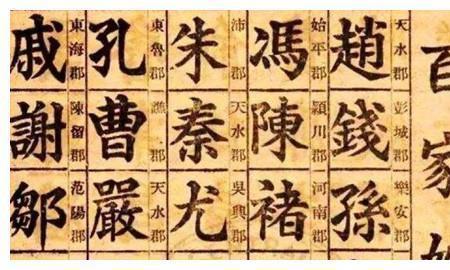 百家姓
天水郡 彭城郡 樂安郡
趙 錢 孫
始平郡 穎川郡 河南郡
馮 陳 褚
沛郡 天水郡 吳興郡
朱 秦 尤
東魯郡 譙郡 天水郡
孔 曹 嚴
東海郡 陳留郡 范陽郡
戚 謝 鄒